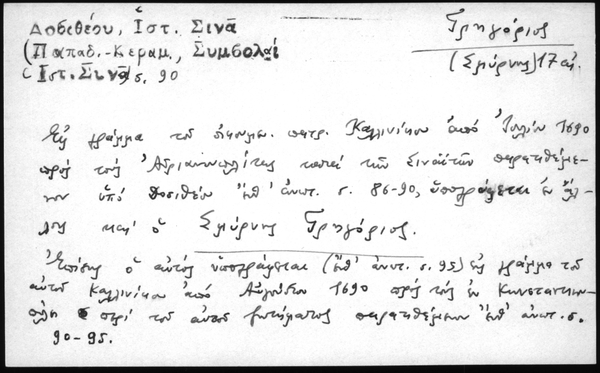 Δοσιθέου, Ἱστ. Σινᾶ
(Παπαδ.-Κεραμ., Συμβολαί
Ἱστ. Σινᾶ) σ. 90
Γρηγόριος
(Σμύρνης) 17 αἰ.
Εἰς γράμμα τοῦ οἰκουμ. πατρ. Καλλινίκου ἀπό Ἰουλίου 1690
πρός τούς Ἀδριανουπολίτας κατά τῶν Σιναϊτῶν παρατιθέμε-
νον ὑπό Δοσιθέου ἔνθ' ἀνωτ. σ. 86-90, ὑπογράφεται ἐν τέ-
λει καί ὁ Σμύρνης Γρηγόριος.
Ἐπίσης ὁ αὐτός ὑπογράφεται (ἔνθ' ἀνωτ. σ. 95) εἰς γράμμα τοῦ
αὐτοῦ Καλλινίκου ἀπό Αὐγούστου 1690 πρός τούς ἐν Κωνσταντινου-
πόλει περί τοῦ αὐτοῦ ζητήματος παρατιθέμενον ἔνθ' ἀνωτ. σ.
90-95.